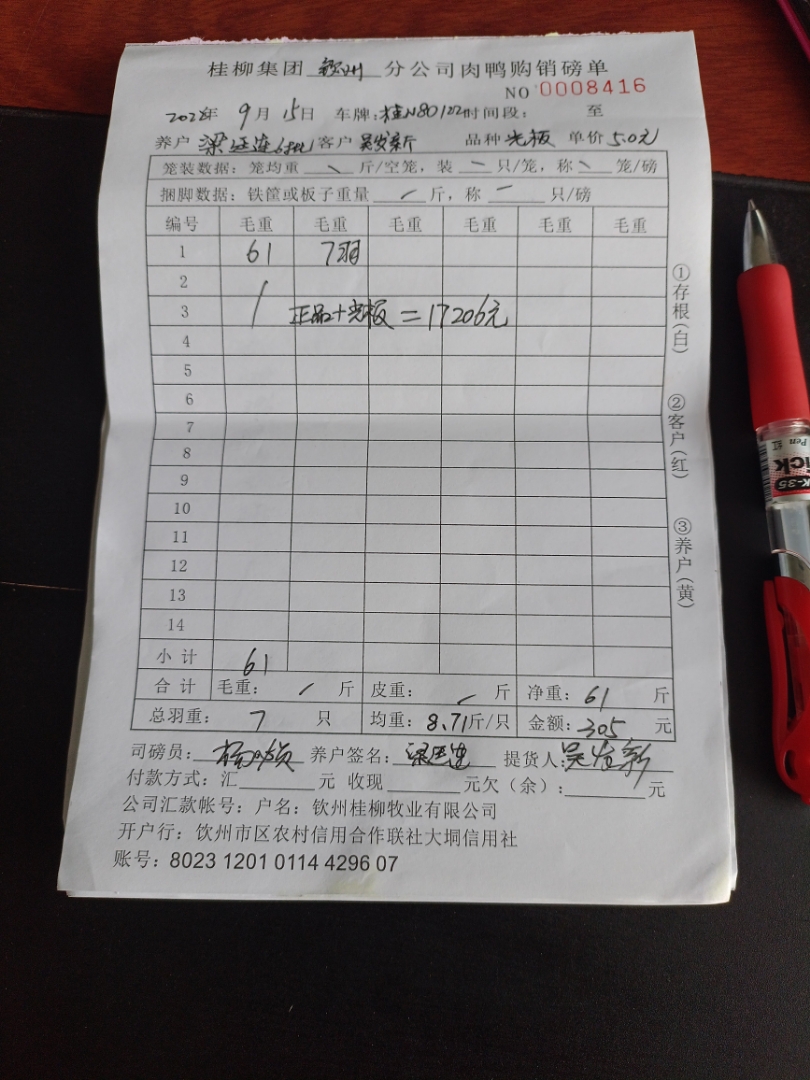 桂柳集团 钦州 分公司肉鸭购销磅单
NO 0008416
年 9月 15日 车牌:桂N80122 时间段: 至
养户 客户 吴发新 品种 光板 单价 5.0元
笼装数据:笼均重 斤/空笼,装 只/笼,称 笼/磅
捆脚数据:铁筐或板子重量 斤,称 只/磅
编号 毛重 毛重 毛重 毛重 毛重 毛重
1 61 7羽
2
3 正品+光板=17206元
4
5
6
7
8
9
10
11
12
13
14
小计 61
合计 毛重: 斤 皮重: 斤 净重:61 斤
总羽重: 7 只 均重:8.71斤/只 金额:305 元
司磅员: 养户签名: 提货人:吴发新
付款方式:汇 元 收现 元欠(余): 元
公司汇款帐号:户名:钦州桂柳牧业有限公司
开户行:钦州市区农村信用合作联社大垌信用社
账号:8023 1201 0114 4296 07
①存根(白)
②客户(红)
③养户(黄)
K-35